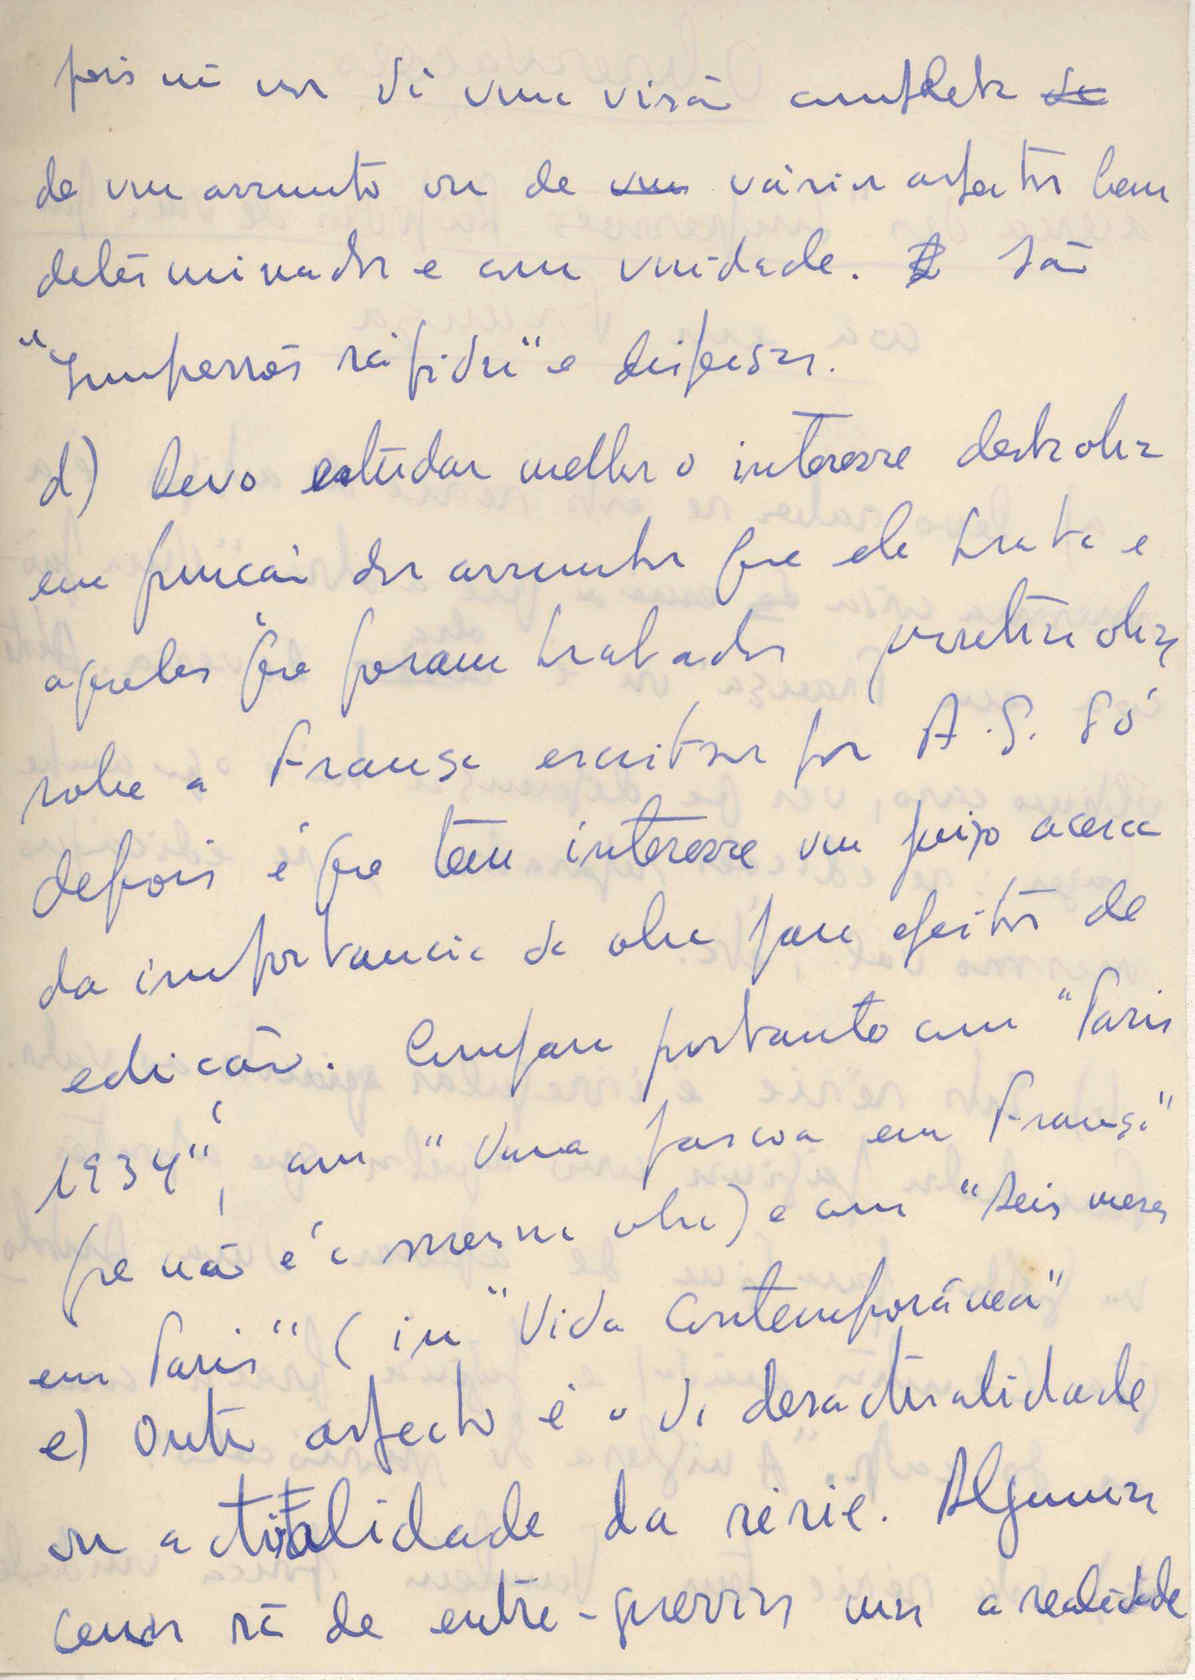 pois não nos dá uma visão completa de
de um assunto ou de um vários aspectos bem
determinados e com unidade. São
"Impressões rápidas" e dispersas.
d) Devo estudar melhor o interesse desta obra
em função dos assuntos que ele trata e
aqueles que foram tratados outras obras
sobre a França escritas por A. S. Só
depois é que tem interesse um juizo acerca
da importancia da obra para efeitos de
edição. Compara portanto com "Paris
1934", com "Uma pascoa em França"
que não é a mesma obra) e com "Seis meses
em Paris" (in "Vida Contemporânea"
e) Outro aspecto é o da desactualidade
ou actualidade da série. Algumas
cenas são de entre-guerras mas a realidade